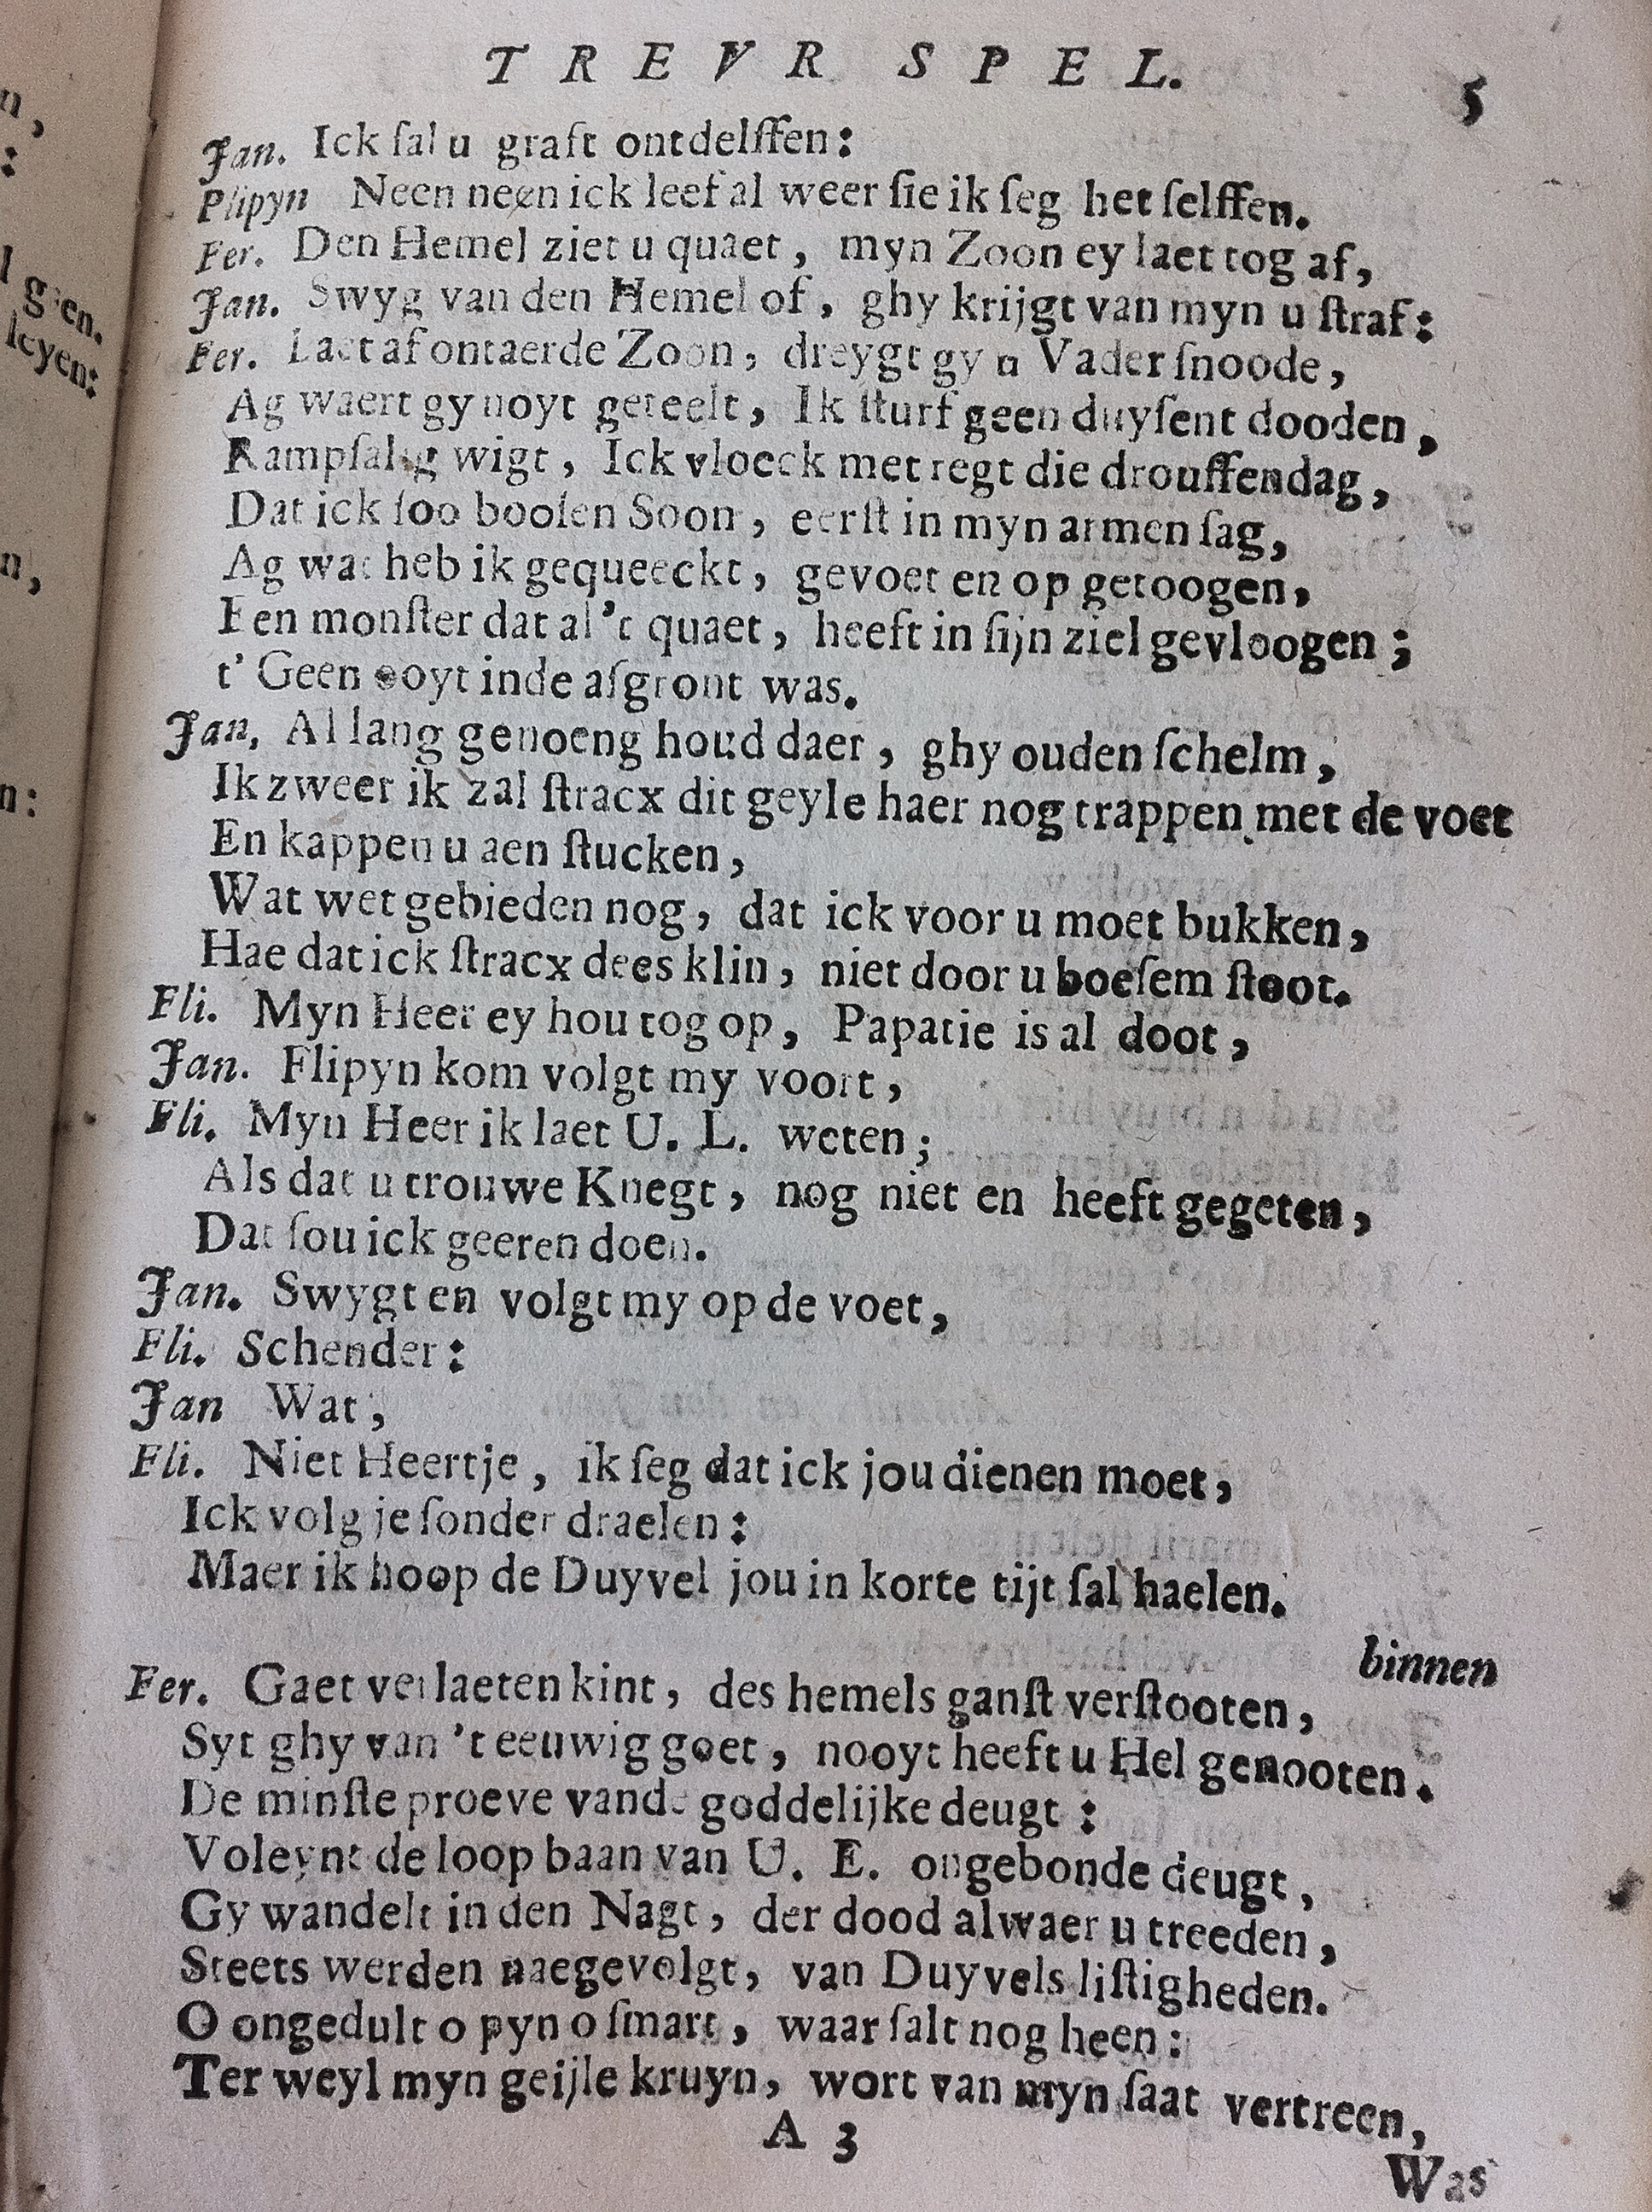 TREVR SPEL. 5
n,
:
l gien.
leyen:
n,
n:
Jan. Ick ſal u graft ontdelffen:
Plipyn Neen neen ick leef al weer ſie ik ſeg het ſelffen.
Fer. Den Hemel ziet u quaet, myn Zoon ey laet tog af,
Jan. Swyg van den Hemel of, ghy krijgt van myn u ſtraf:
Fer. Laet af ontaerde Zoon, dreygt gy u Vader ſnoode,
Ag waert gy noyt geteelt, Ik ſturf geen duyſent dooden,
Rampſalig wigt, Ick vloeck met regt die drouffen dag,
Dat ick ſoo booſen Soon, eerſt in myn armen ſag,
Ag wat heb ik gequeeckt, gevoet en op getoogen,
Een monſter dat al 't quaet, heeft in ſijn ziel gevloogen;
t' Geen ooyt inde afgront was.
Jan, Al lang genoeng houd daer, ghy ouden ſchelm,
Ik zweer ik zal ſtracx dit geyle haer nog trappen met de voet
En kappen u aen ſtucken,
Wat wet gebieden nog, dat ick voor u moet bukken,
Hae dat ick ſtracx dees klin, niet door u boeſem ſtoot.
Fli. Myn Heer ey hou tog op, Papatie is al doot,
Jan. Flipyn kom volgt my voort,
Fli. Myn Heer ik laet U. L. weten;
Als dat u trouwe Knegt, nog niet en heeft gegeten,
Dat ſou ick geeren doen.
Jan. Swygt en volgt my op de voet,
Fli. Schender:
Jan Wat,
Fli. Niet Heertje, ik ſeg dat ick jou dienen moet,
Ick volg je ſonder draelen:
Maer ik hoop de Duyvel jou in korte tijt ſal haelen.
binnen
Fer. Gaet verlaeten kint, des hemels ganſt verſtooten,
Syt ghy van 't eeuwig goet, nooyt heeft u Hel genooten.
De minſte proeve vande goddelijke deugt:
Voleynt de loop baan van U. E. ongebonde deugt,
Gy wandelt in den Nagt, der dood alwaer u treeden,
Steets werden naegevolgt, van Duyvels liſtigheden.
O ongedult o pyn o ſmart, waar ſalt nog heen:
Ter weyl myn geijle kruyn, wort van myn ſaat vertreen,
A 3
Was